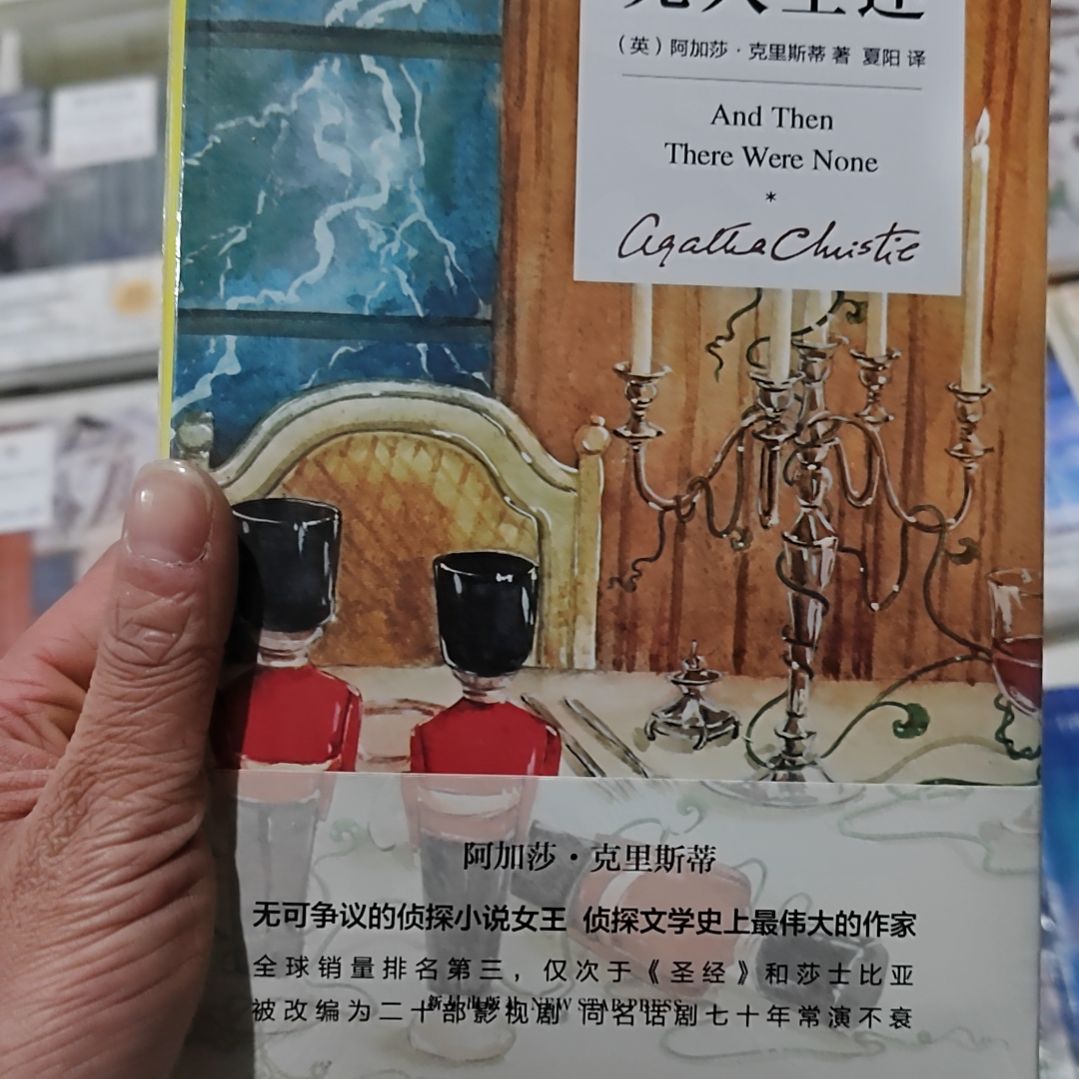 无人生还
（英）阿加莎·克里斯蒂 著 夏阳 译
And Then
There Were None
*
Agatha Christie
阿加莎·克里斯蒂
无可争议的侦探小说女王 侦探文学史上最伟大的作家
全球销量排名第三，仅次于《圣经》和莎士比亚
新星出版社 NEW STAR PRESS
被改编为二十部影视剧 同名话剧七十年常演不衰